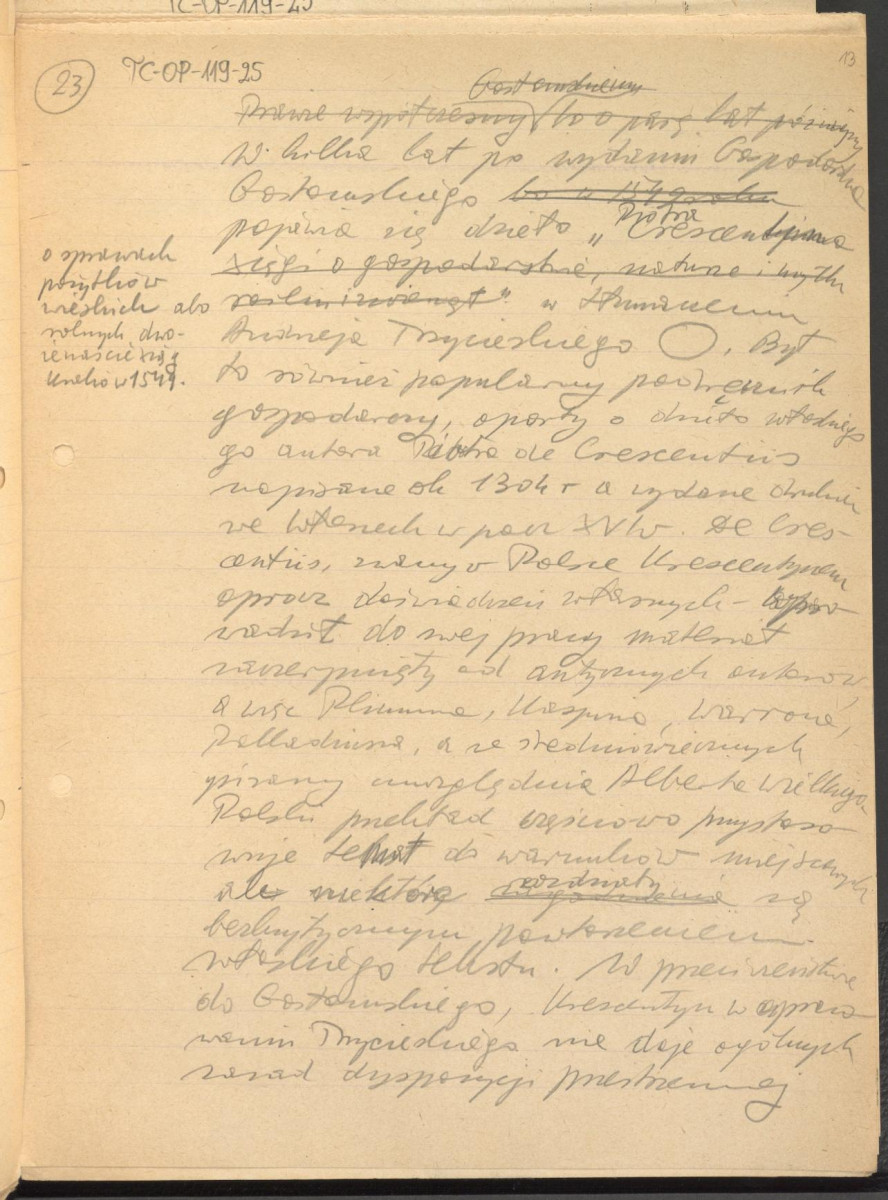 TC-OP-119-25
13
23
TC-OP-119-25
Gostomskiemu
Prawie współczesny to o parę lat późniejszy
W kilka lat po wydaniu Gospodarstwa
Gostomskiego bo w 1549 roku
pojawia się dzieło „Piotra Crescentyna
księgi o gospodarstwie,
roślin i zwierząt" w tłumaczeniu
o sprawach
pożytków
wiejskich abo
rolnych dwo-
ienaście ksiąg
Kraków 1549.
Andrzeja Trzycieskiego . Był
to również popularny podręcznik
gospodarczy, oparty o dzieło włoskie
go autora Piotra de Crescentiis
napisane ok 1304 r a wydane drukiem
we Włoszech w pocz XVI w. De Cres-
centiis, zwany w Polsce Krescentynem
oprócz doświadczeń własnych – wpro
wadził do swej pracy materiał
zaczerpnięty od antycznych autorów,
a więc Pliniusza, Warrona,
Palladiusa, a ze średniowiecznych
pisarzy uwzględnia Alberta Wielkiego.
Polski przekład częściowo przystoso
wuje tekst do warunków miejscowych
ale niektóre zagadnienia rozdziały są
bezkrytycznym powtórzeniem
włoskiego tekstu. W przeciwieństwie
do Gostomskiego, Krescentyn w opraco
waniu Trzycieskiego nie daje ogólnych
zasad dyspozycji przestrzennej